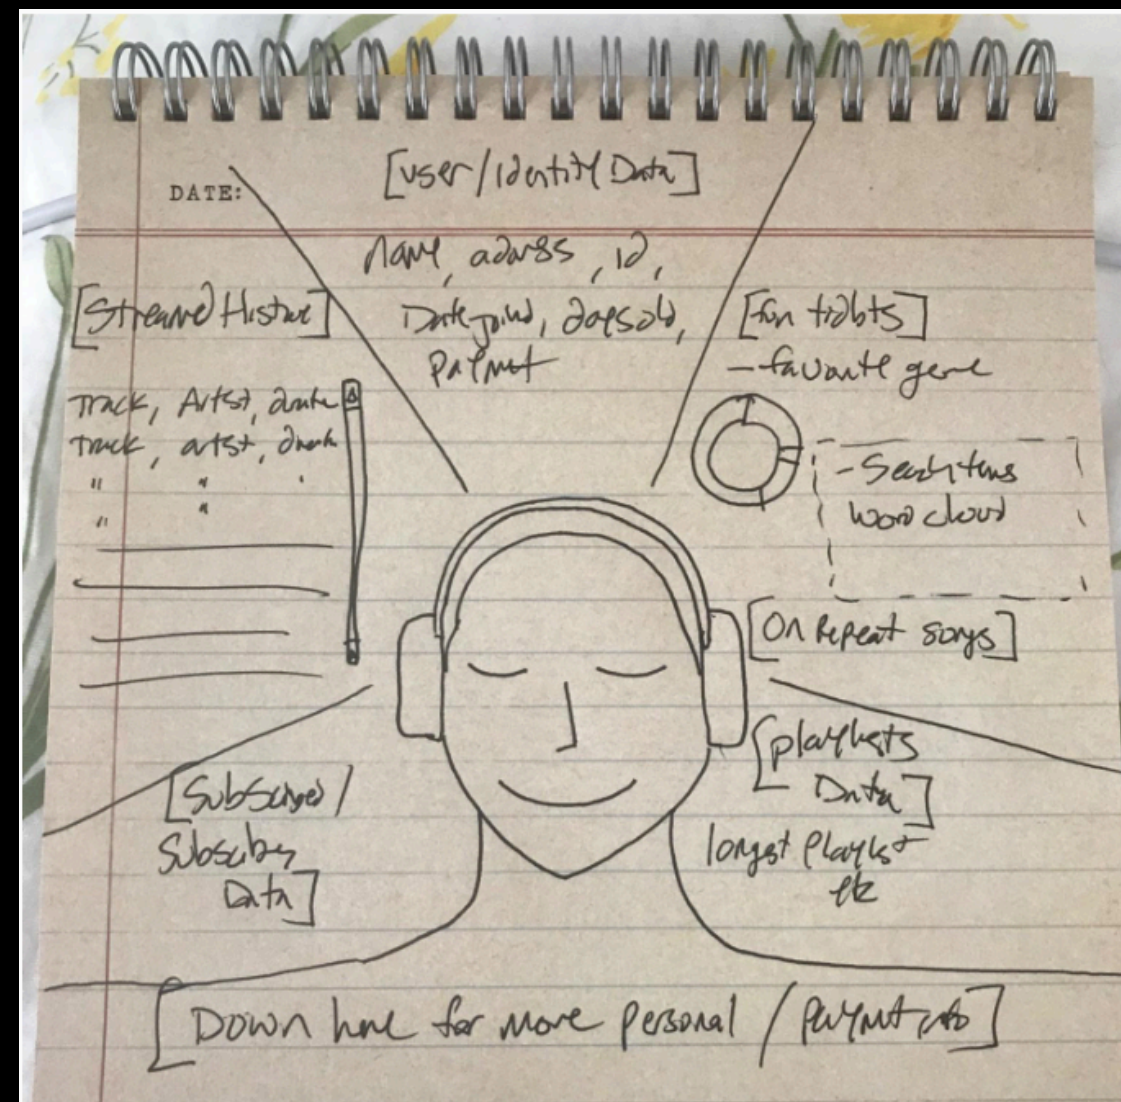 DATE:
[user/identity Data]
name, address, id,
Date joined, days old,
Payment
[Streamed History]
Track, Artist, durate
Track, artist, durate
" " "
" "
[fun tidbits]
- favorite genre
- Search terms
word cloud
[On Repeat songs]
[playlists
Data]
longest playlist
etc
[Subscribed/
Subscriber
Data]
[Down here for more personal / payment info]